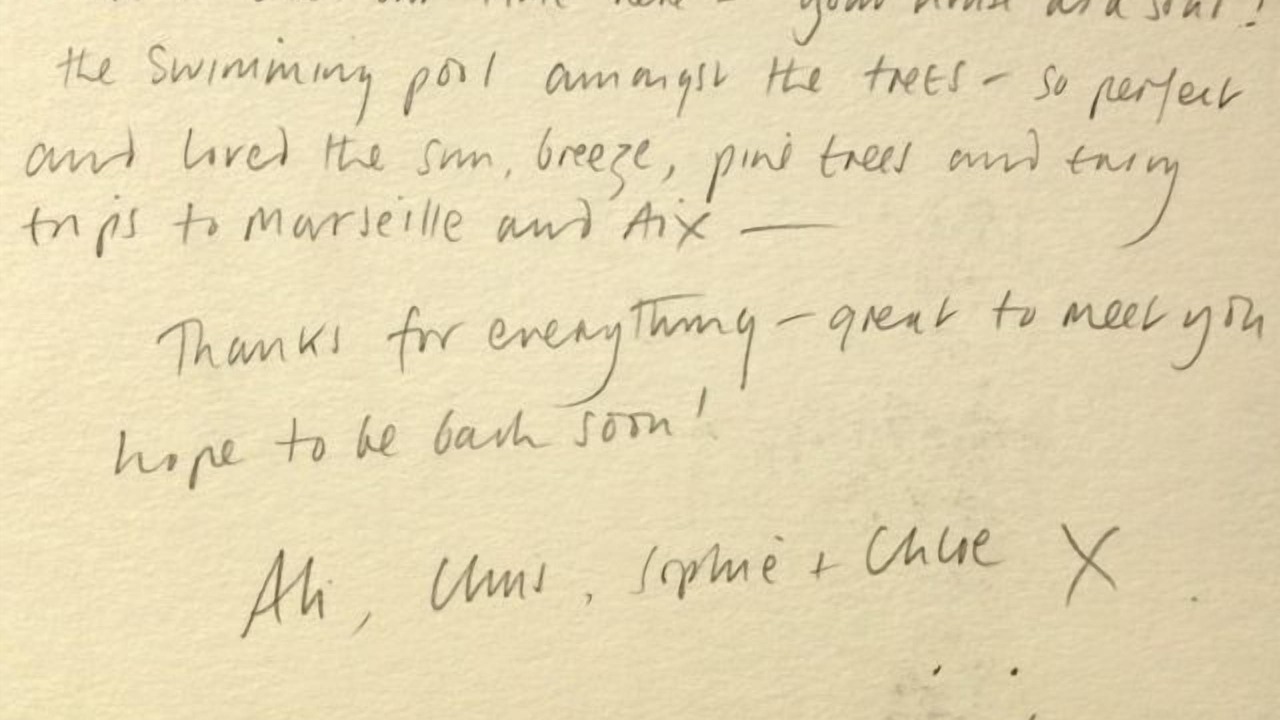 our time here - your house and
the swimming pool amongst the trees - so perfect
and loved the sun, breeze, pine trees and easy
trips to Marseille and Aix —
Thanks for everything - great to meet you
hope to be back soon!
Ali, Chris, Sophie + Chloe X